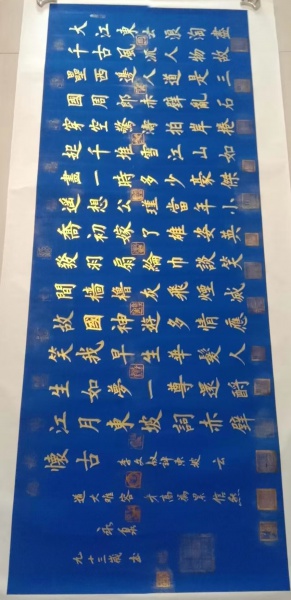 大江東去浪淘盡
千古風流人物故
壘西邊人道是三
國周郎赤壁亂石
穿空驚濤拍岸捲
起千堆雪江山如
畫一時多少豪傑
遙想公瑾當年小
喬初嫁了雄姿英
發羽扇綸巾談笑
間檣櫓灰飛煙滅
故國神遊多情應
笑我早生華髮人
生如夢一尊還酹
江月東坡詞赤壁
懷古 東坡云
道大難容才高為累信然
九十三歲書